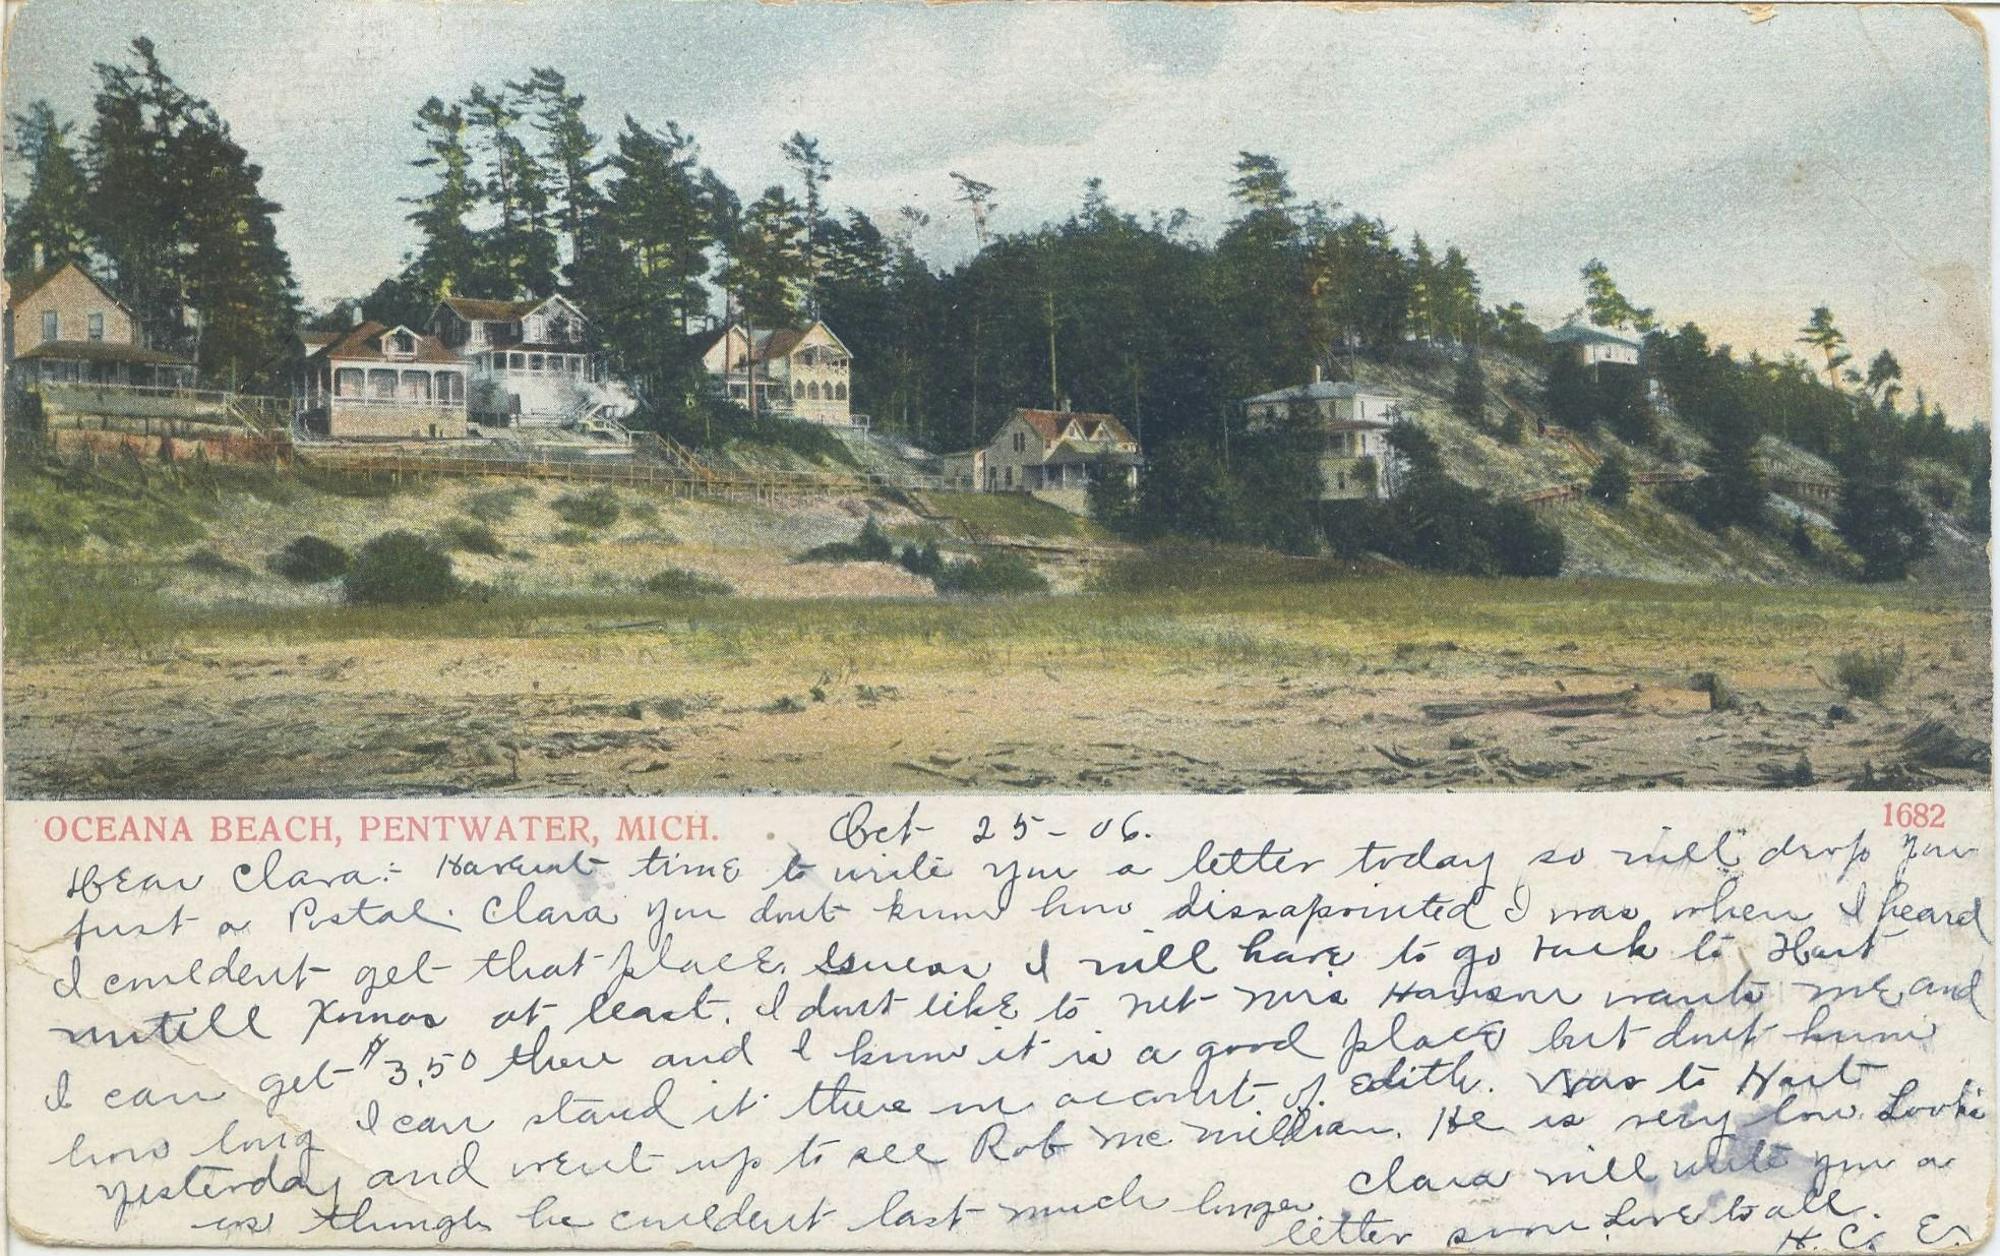 OCEANA BEACH, PENTWATER, MICH.
Oct 25-06.
1682
Dear Clara:- Havent time to write you a letter today so will drop you
just a Postal. Clara you dont know how dissapointed I was when I heard
I couldent get that place. Guess I will have to go back to Hart
untill Xmas at least. I dont like to but Mrs wants me and
I can get $3.50 there and I know it is a good place but dont know
how long I can stand it there on account of Edith. Was to Hart
yesterday and went up to see Rob Mc Millian. He is very low. Looks
as though he couldent last much longer. Clara will write you a
letter soon. Love to all.
H. C. E.